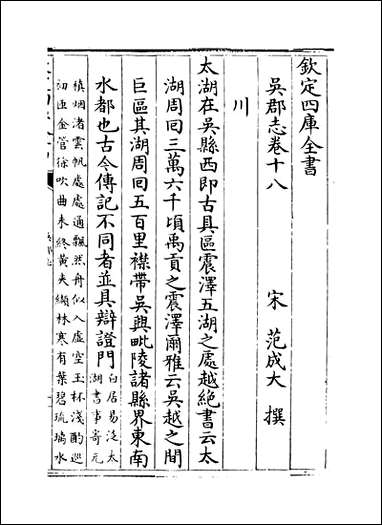 欽定四庫全書
吳郡志卷十八
宋 范成大 撰
川
太湖在吳縣西即古具區震澤五湖之處越絶書云太
湖周回三萬六千頃禹貢之震澤爾雅云吳越之間
巨區其湖周回五百里襟帶吳興毗陵諸縣界東南
水都也古今傳記不同者並具辯證門白居易泛太
湖書事寄元
稹烟渚雲帆處處通飄然舟似入虛空玉杯淺酌巡
初匝金管徐吹曲未終黃夾纈林寒有葉碧琉璃水